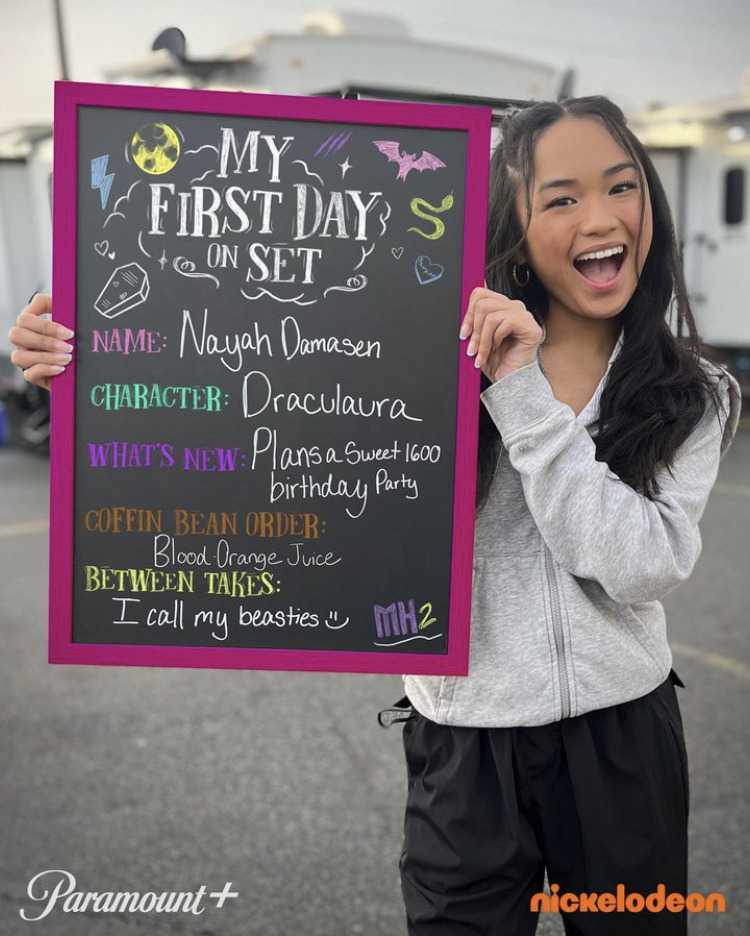 MY
FIRST DAY
ON SET
NAME: Nayah Damasen
CHARACTER: Draculaura
WHAT'S NEW: Plans a Sweet 1600
birthday Party
COFFIN BEAN ORDER:
Blood Orange Juice
BETWEEN TAKES:
I call my beasties
MH2
Paramount+
nickelodeon